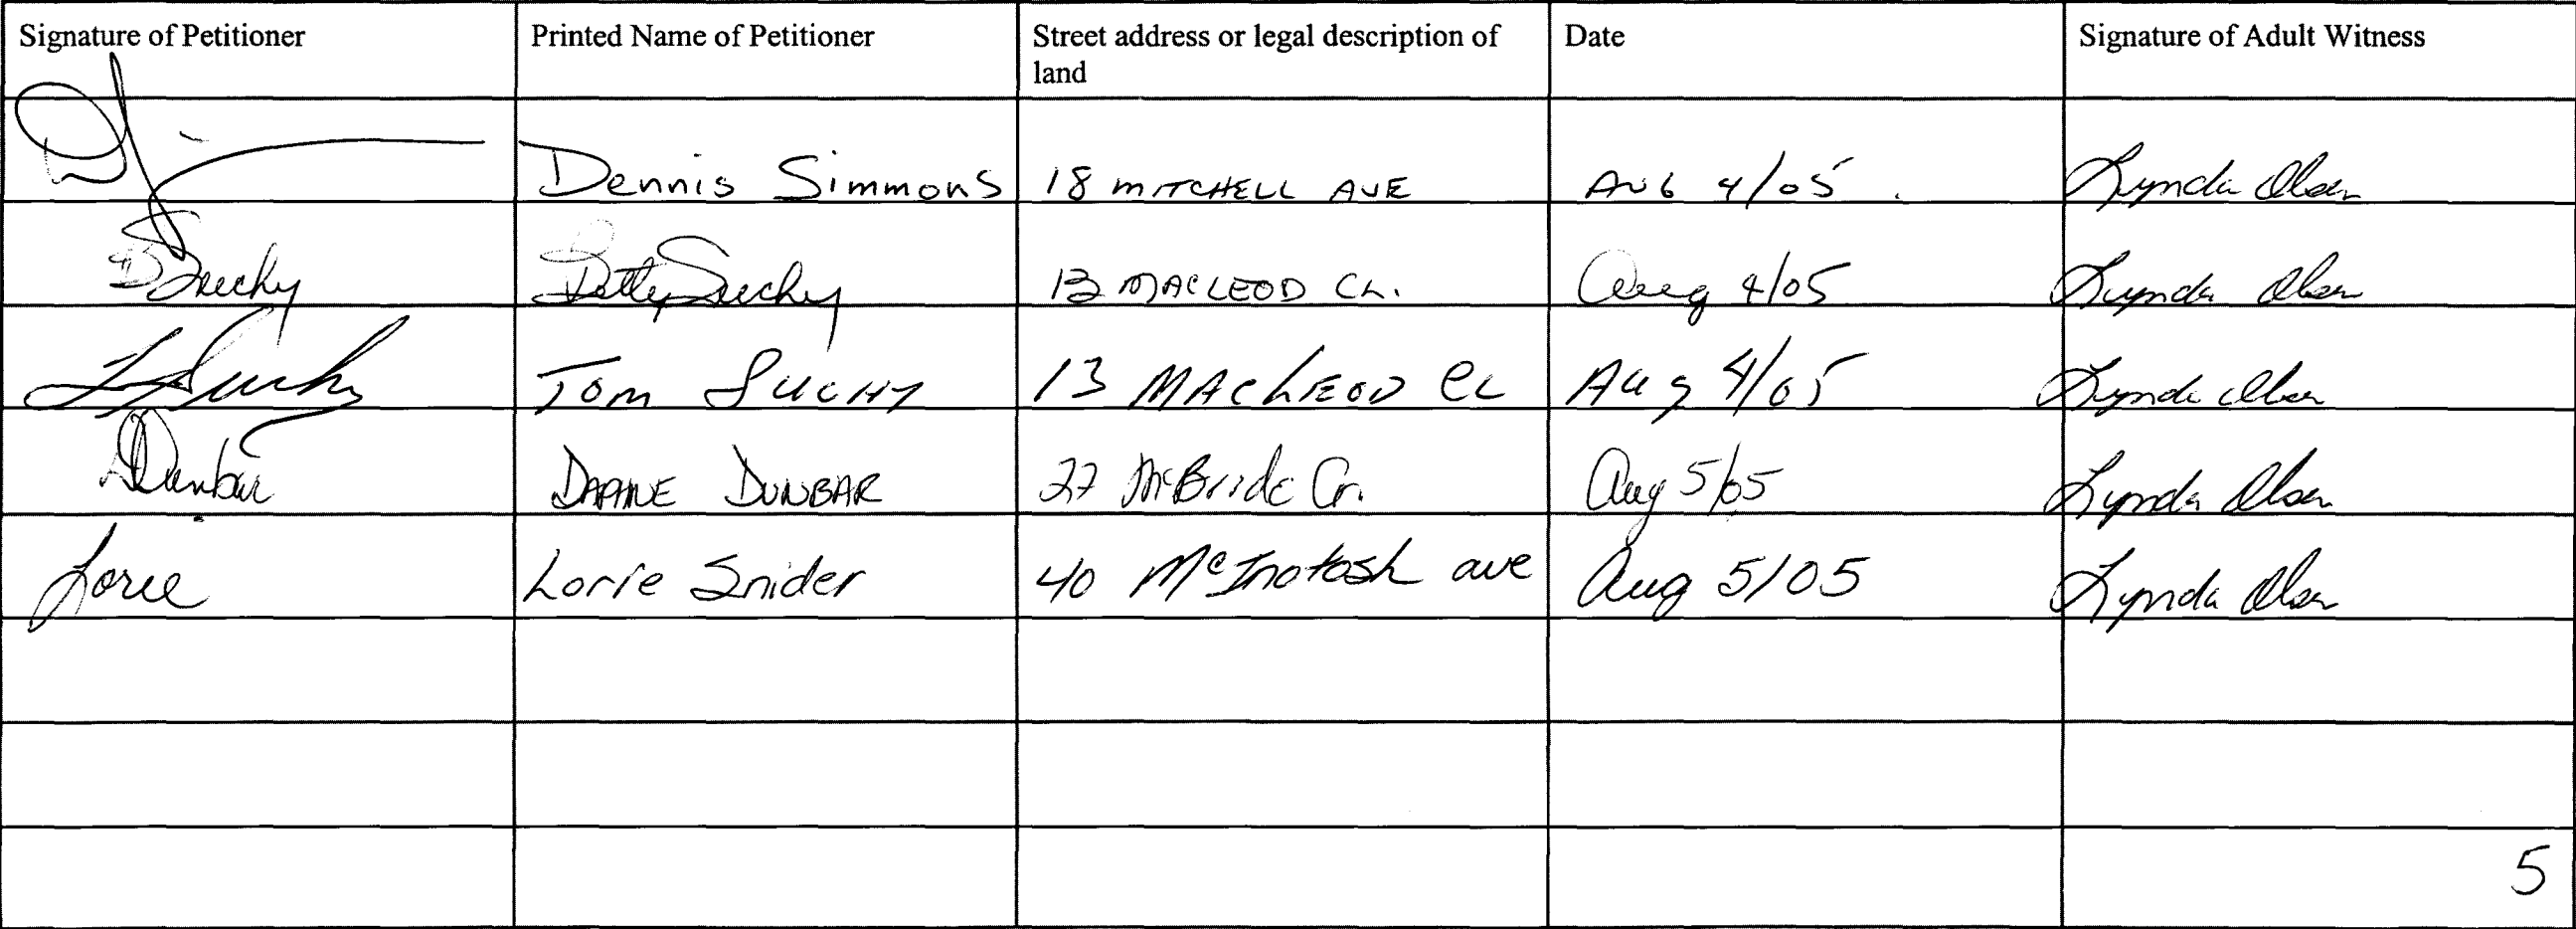 Signature of Petitioner Printed Name of Petitioner Street address or legal description of land Date Signature of Adult Witness
Dennis Simmons 18 MITCHELL AVE AUG 4/05 Lynda Olsen
BSuchy Betty Suchy 13 MACLEOD CL. Aug 4/05 Lynda Olsen
T Suchy Tom SUCHY 13 MACLEOD CL Aug 4/05 Lynda Olsen
DDunbar DUNBAR 27 McBride Cr. Aug 5/05 Lynda Olsen
Lorie Lorie Snider 40 McIntosh ave Aug 5/05 Lynda Olsen
5